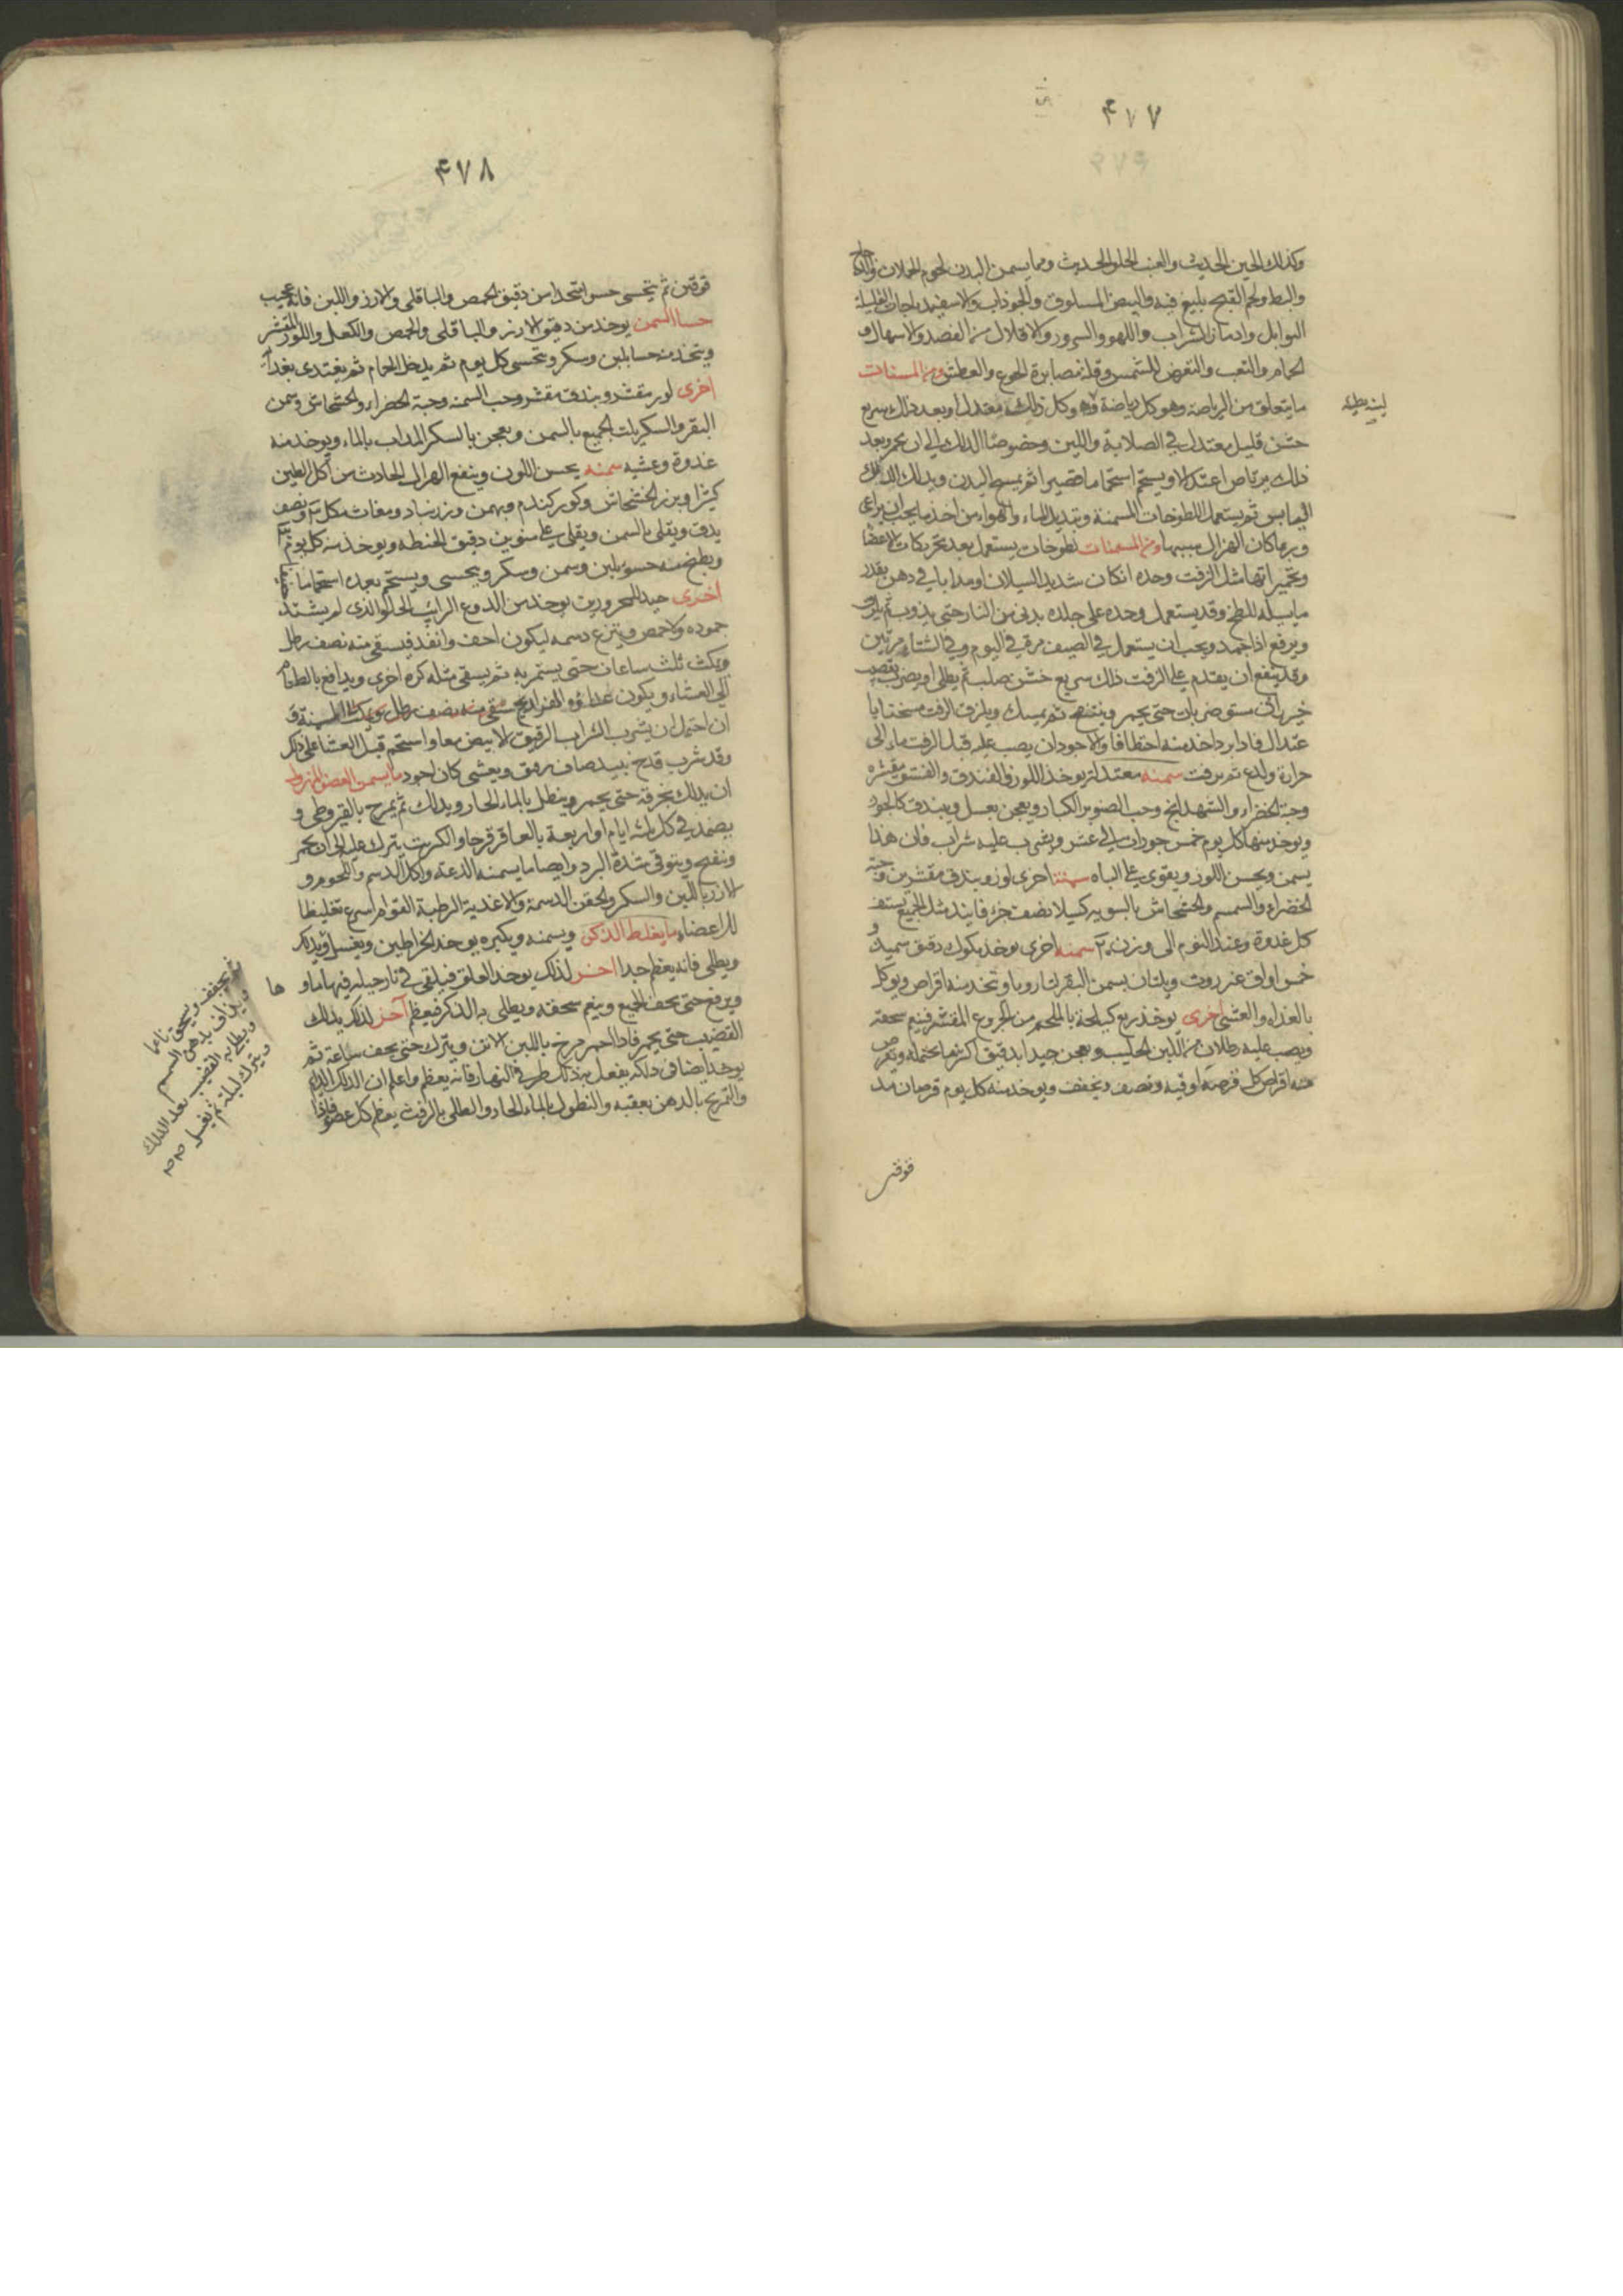 ٤٧٧
وكذلك الجبن الحديث والعنب الحلو الحديث ومما يسمن البدن لحوم الحملان والدجاج
والبط ولحم القبج بليغ فيه والبيض المسلوق والجوذاب والاسفيدباجات القليلة
التوابل وادمان الشراب واللهو والسرور والاقلال من الفصد والاسهال و
الحمام والتعب والتعرض للشمس وقلة مصابرة الجوع والعطش ومن المسمنات
ما يتعلق من الرياضة وهو كل رياضة لينة بطيئة وكل ذلك معتدل وبعد ذلك سريع
لينة بطيئة
خشن قليل معتدل في الصلابة واللين وخصوصا الدلك الى ان يحمر وبعد
ذلك يرتاض اعتدالا ويستحم استحماما قصيرا ثم يمسح البدن ويدلك الدلك
اليابس ثم يستعمل اللطوخات المسمنة وتبديل الماء والهواء من احد ما يجب ان يراعى
وربما كان الهزال بسببهما ومن المسمنات لطوخات يستعمل بعد تحريكات الاعضا
وتحميراتها مثل الزفت وحده ان كان شديد السيلان او مذابا في دهن بقدر
ما يسيله للطخ وقد يستعمل وحده على جلده يدنى من النار حتى يذوب ثم يلزق
ويرفع اذا جمد ويجب ان يستعمل في الصيف مرة في اليوم وفي الشتاء مرتين
وقد ينفع ان يقدم على الزفت ذلك سريع خشن صلب ثم يطلى او يضرب بقضيب
خيزراني مستو ضربات حتى يحمر وينتفخ ثم يمسك ويلزق الزفت مسخنا با
عتدال فاذا برد اخذ منه اختطافا والاجود ان يصب عليه قبل الزفت ماء الى
حرارة ولدغ ثم يزفت سمنه معتدلة يوخذ اللوز والفندق والفستق مقشره
وحبة الخضراء والشهدانج وحب الصنوبر الكبار ويعجن بعسل ويبندق كالجوز
ويوخذ منها كل يوم خمس جوزات الى عشر ويشرب عليه شراب فان هذا
يسمن ويحسن اللون ويقوى على الباه سمنة اخرى لوز وبندق مقشرين وحبة
الخضراء والسمسم والخشخاش بالسوية كسيلا نصف جزء فانيذ مثل الجميع يستف
كل غدوة وعند النوم الى وزن ٢٠ سمنه اخرى يوخذ مكوك دقيق سميد و
خمس اواق عنزروت ويلتان بسمن البقر لتا رويا وتخذ منه اقراص ويوكل
بالغداء والعشى اخرى يوخذ ربع كيلجة بالملحم من الخروع المقشر فينعم سحقه
ويصب عليه رطلان من اللبن الحليب ويعجن جيدا بدقيق اكثر ما يحتمله ويقرص
منه اقراص كل قرصة اوقية ونصف ويجفف ويوخذ منه كل يوم قرصان مد
قوقين
٤٧٨
قوقين ثم يتحسى حسوا متخذا من دقيق الحمص والباقلى والارز واللبن فانه عجيب
حسا السمن يوخذ من دقيق الارز والباقلى والحمص والكعك واللوز المقشر
ويتخذ منه حسا بلبن وسكر ويتحسى كل يوم ثم يدخل الحمام ثم يغتدى بغداء
اخرى لوز مقشر وبندق مقشر وحب السمنه وحبة الخضراء والخشخاش وسمن
البقر والسكر يلت الجميع بالسمن ويعجن بالسكر المذاب بالماء ويوخذ منه
غدوة وعشيه سمنه يحسن اللون وينفع الهزال الحادث من اكل الطين
كثيرا وبزر الخشخاش وكور كندم وبهمن وزرنباد ومغاث مكل ونصف
يدق ويقلى بالسمن ويقلى على منوين دقيق الحنطه ويوخذ منه كل يوم
ويطبخ منه حسو بلبن وسمن وسكر ويتحسى ويستحم بعده استحماما
اخرى جيد للمحرورين يوخذ من الدوغ الرائب الحلو الذي لم يشتد
جموده ولا حمض وينزع دسمه ليكون اخف وانفذ فيسقى منه نصف رطل
ويمكث ثلث ساعات حتى يستمريه ثم يسقى مثله كرة اخرى ويدافع بالطعام
الى العشاء ويكون غذاؤه الفراريج المسمنة و
ان احتمل ان يشرب الشراب الرقيق الابيض معا واستحم قبل العشا على ذلك
وقد شرب قدح نبيذ صاف رقيق ويعشى كان اجود ما يسمن العضو المهزول
ان يدلك بخرقة حتى يحمر وينطل بالماء الحار ويدلك ثم يمرخ بالقيروطي و
يضمد في كل ثلثه ايام او اربعة بالعاقرقرحا والكبريت يترك عليه الى ان يحمر
وينفخ ويتوقى شدة البرد وايضا ما يسمنه الدعة واكل الدسم واللحوم و
الارز باللبن والسكر والحقن الدسمة والاغذية الرطبة القوام اسرع تغليظا
للاعضاء ما يغلظ الذكر ويسمنه ويكبره يوخذ الخراطين ويغسل ويدلك
ويطلى فانه يعظم جدا اخر لذلك يوخذ العلق فيلقى في نارجيله فيها ماوها
ويرفع حتى يجف الجميع وينعم سحقه ويطلى به الذكر فيعظم آخر لذلك يدلك
القضيب حتى يحمر فاذا احمر مرخ باللبن الاتن ويترك حتى يجف ساعة ثم
يوخذ ايضا في دلكه يفعل به ذلك طرفي النهار فانه يعظم واعلم ان الدلك الدائم
والتمريخ بالدهن بعقبه والنطول بالماء الحار والطلى بالزفت يعظم كل عضو
ثم يجفف ويسحق ناعما
ويداف بدهن السمسم
ويطلى به القضيب بعد الدلك
ويترك ليلة ثم يغسل صح